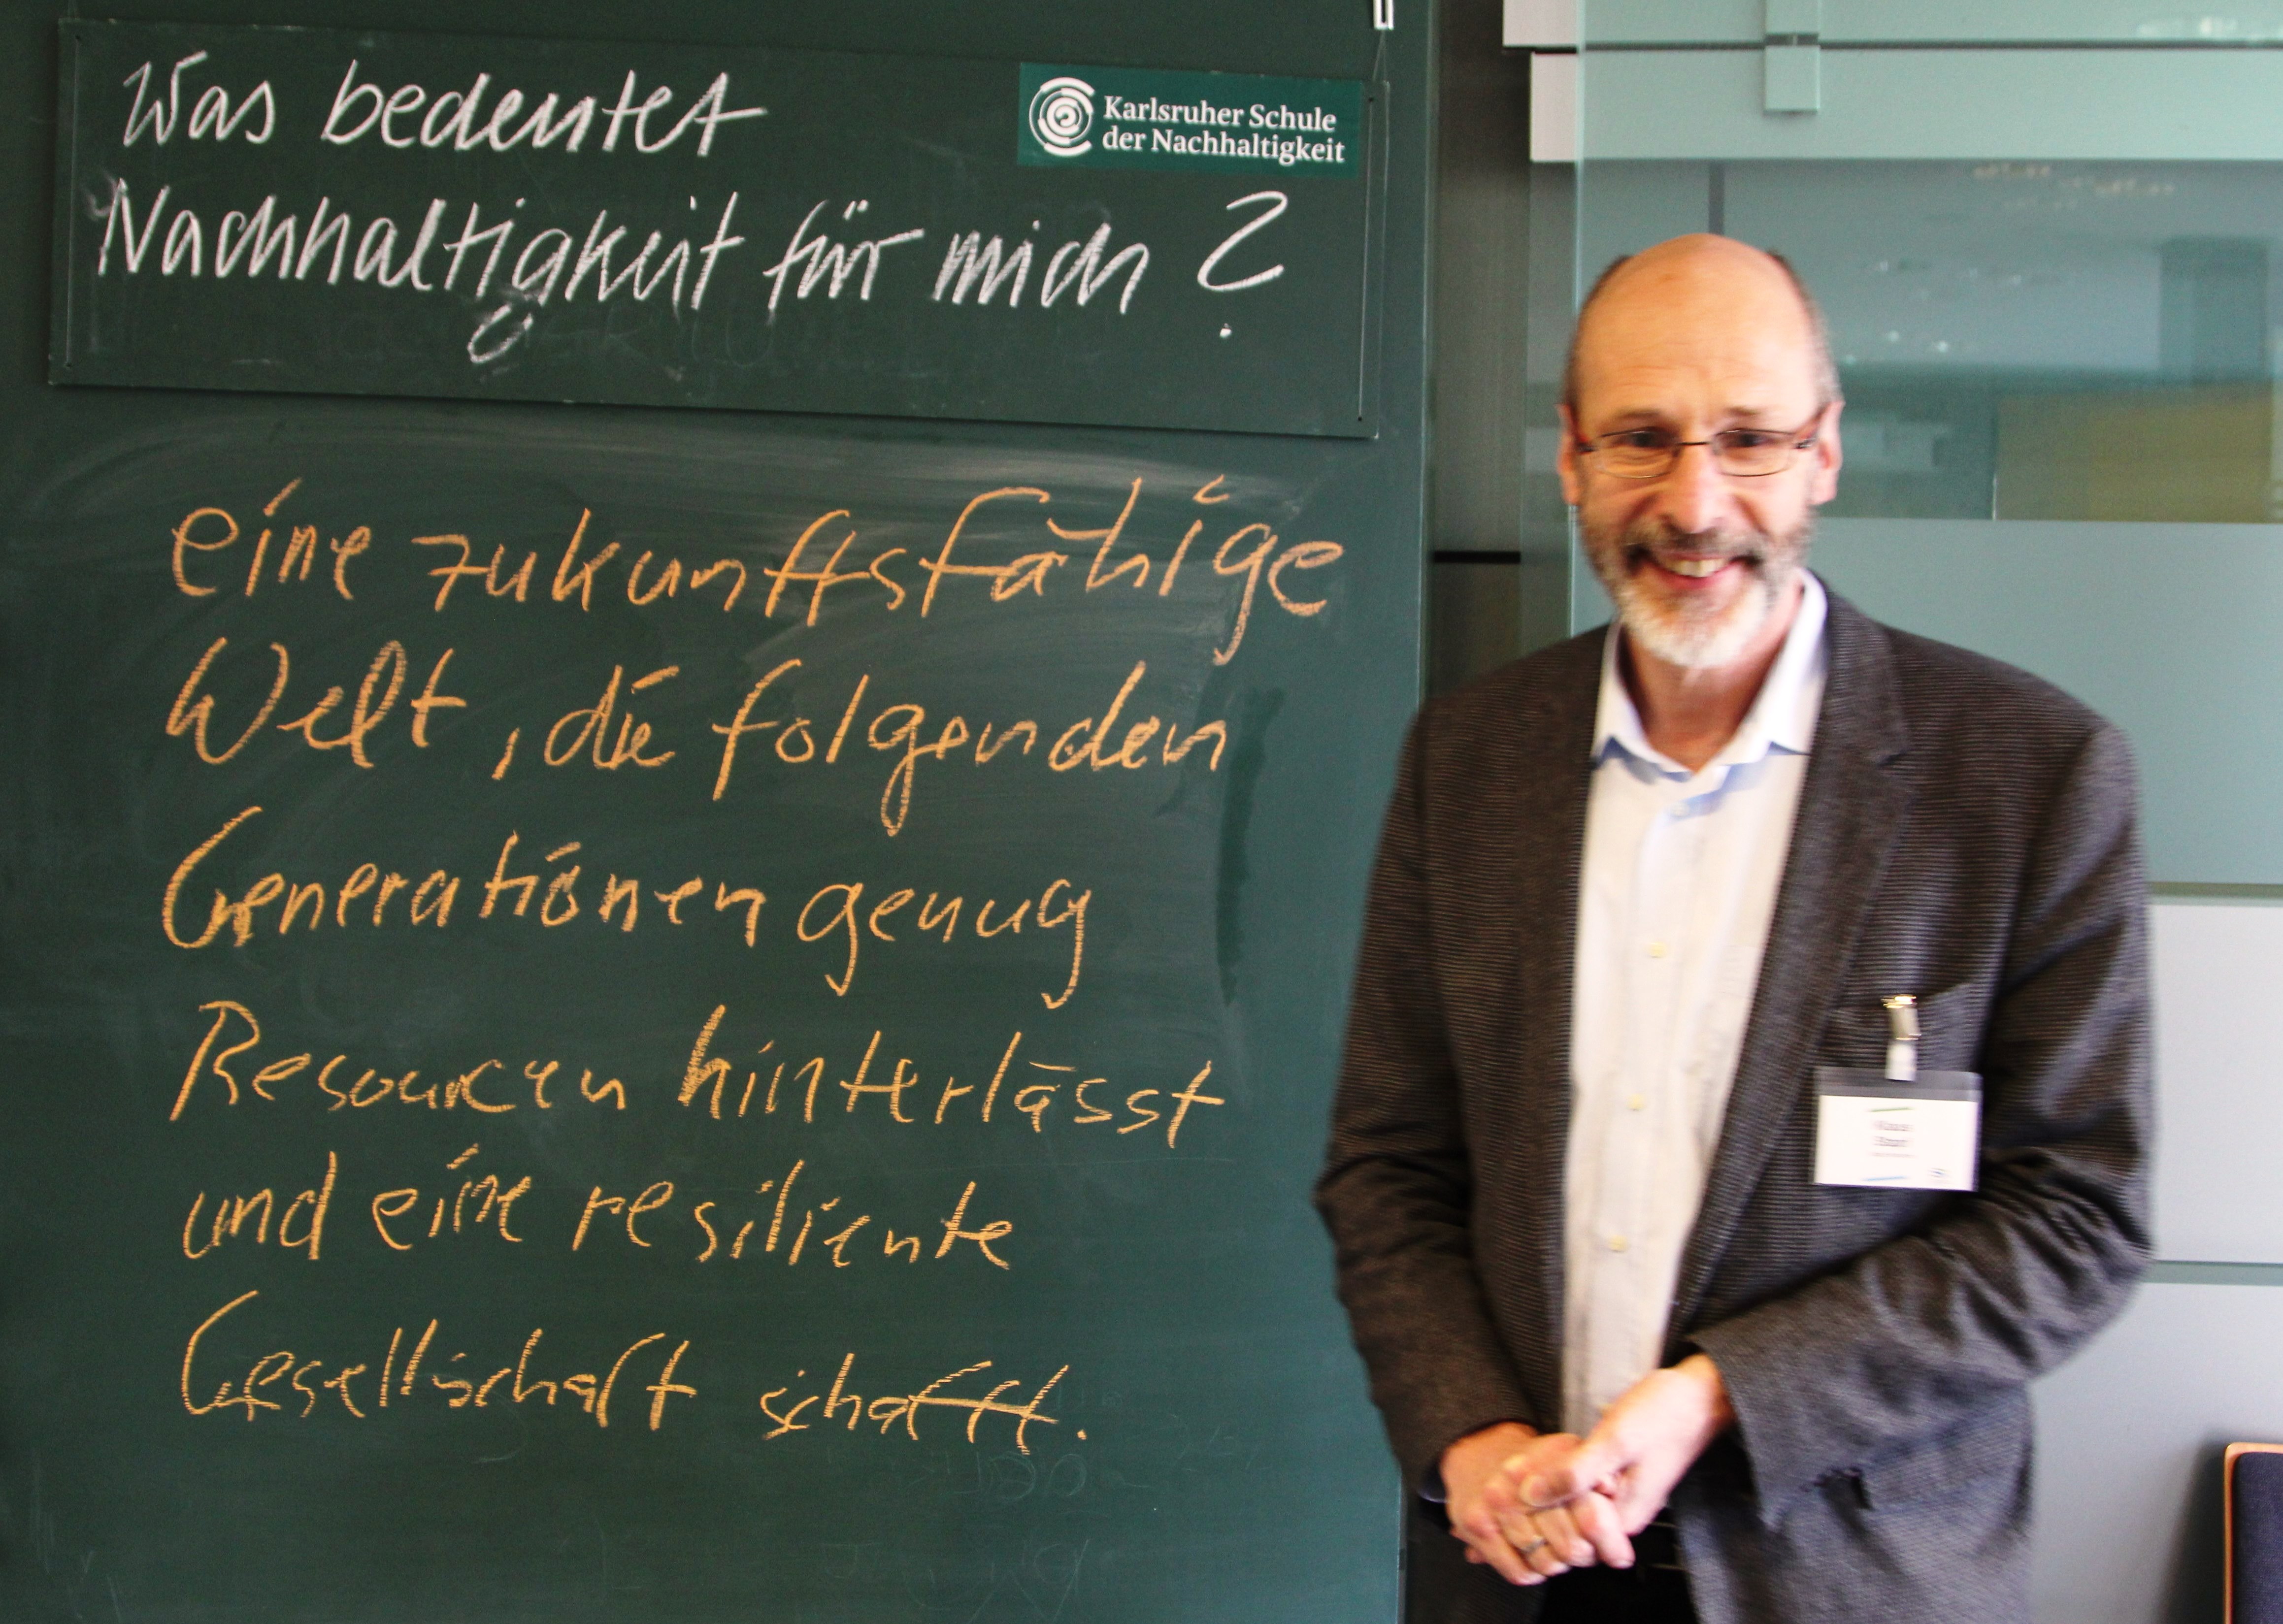 Was bedeutet
Karlsruher Schule
der Nachhaltigkeit
Nachhaltigkeit für mich?
eine zukunftsfähige
Welt, die folgenden
Generationen genug
Resourcen hinterlässt
und eine resiliente
Gesellschaft schafft.